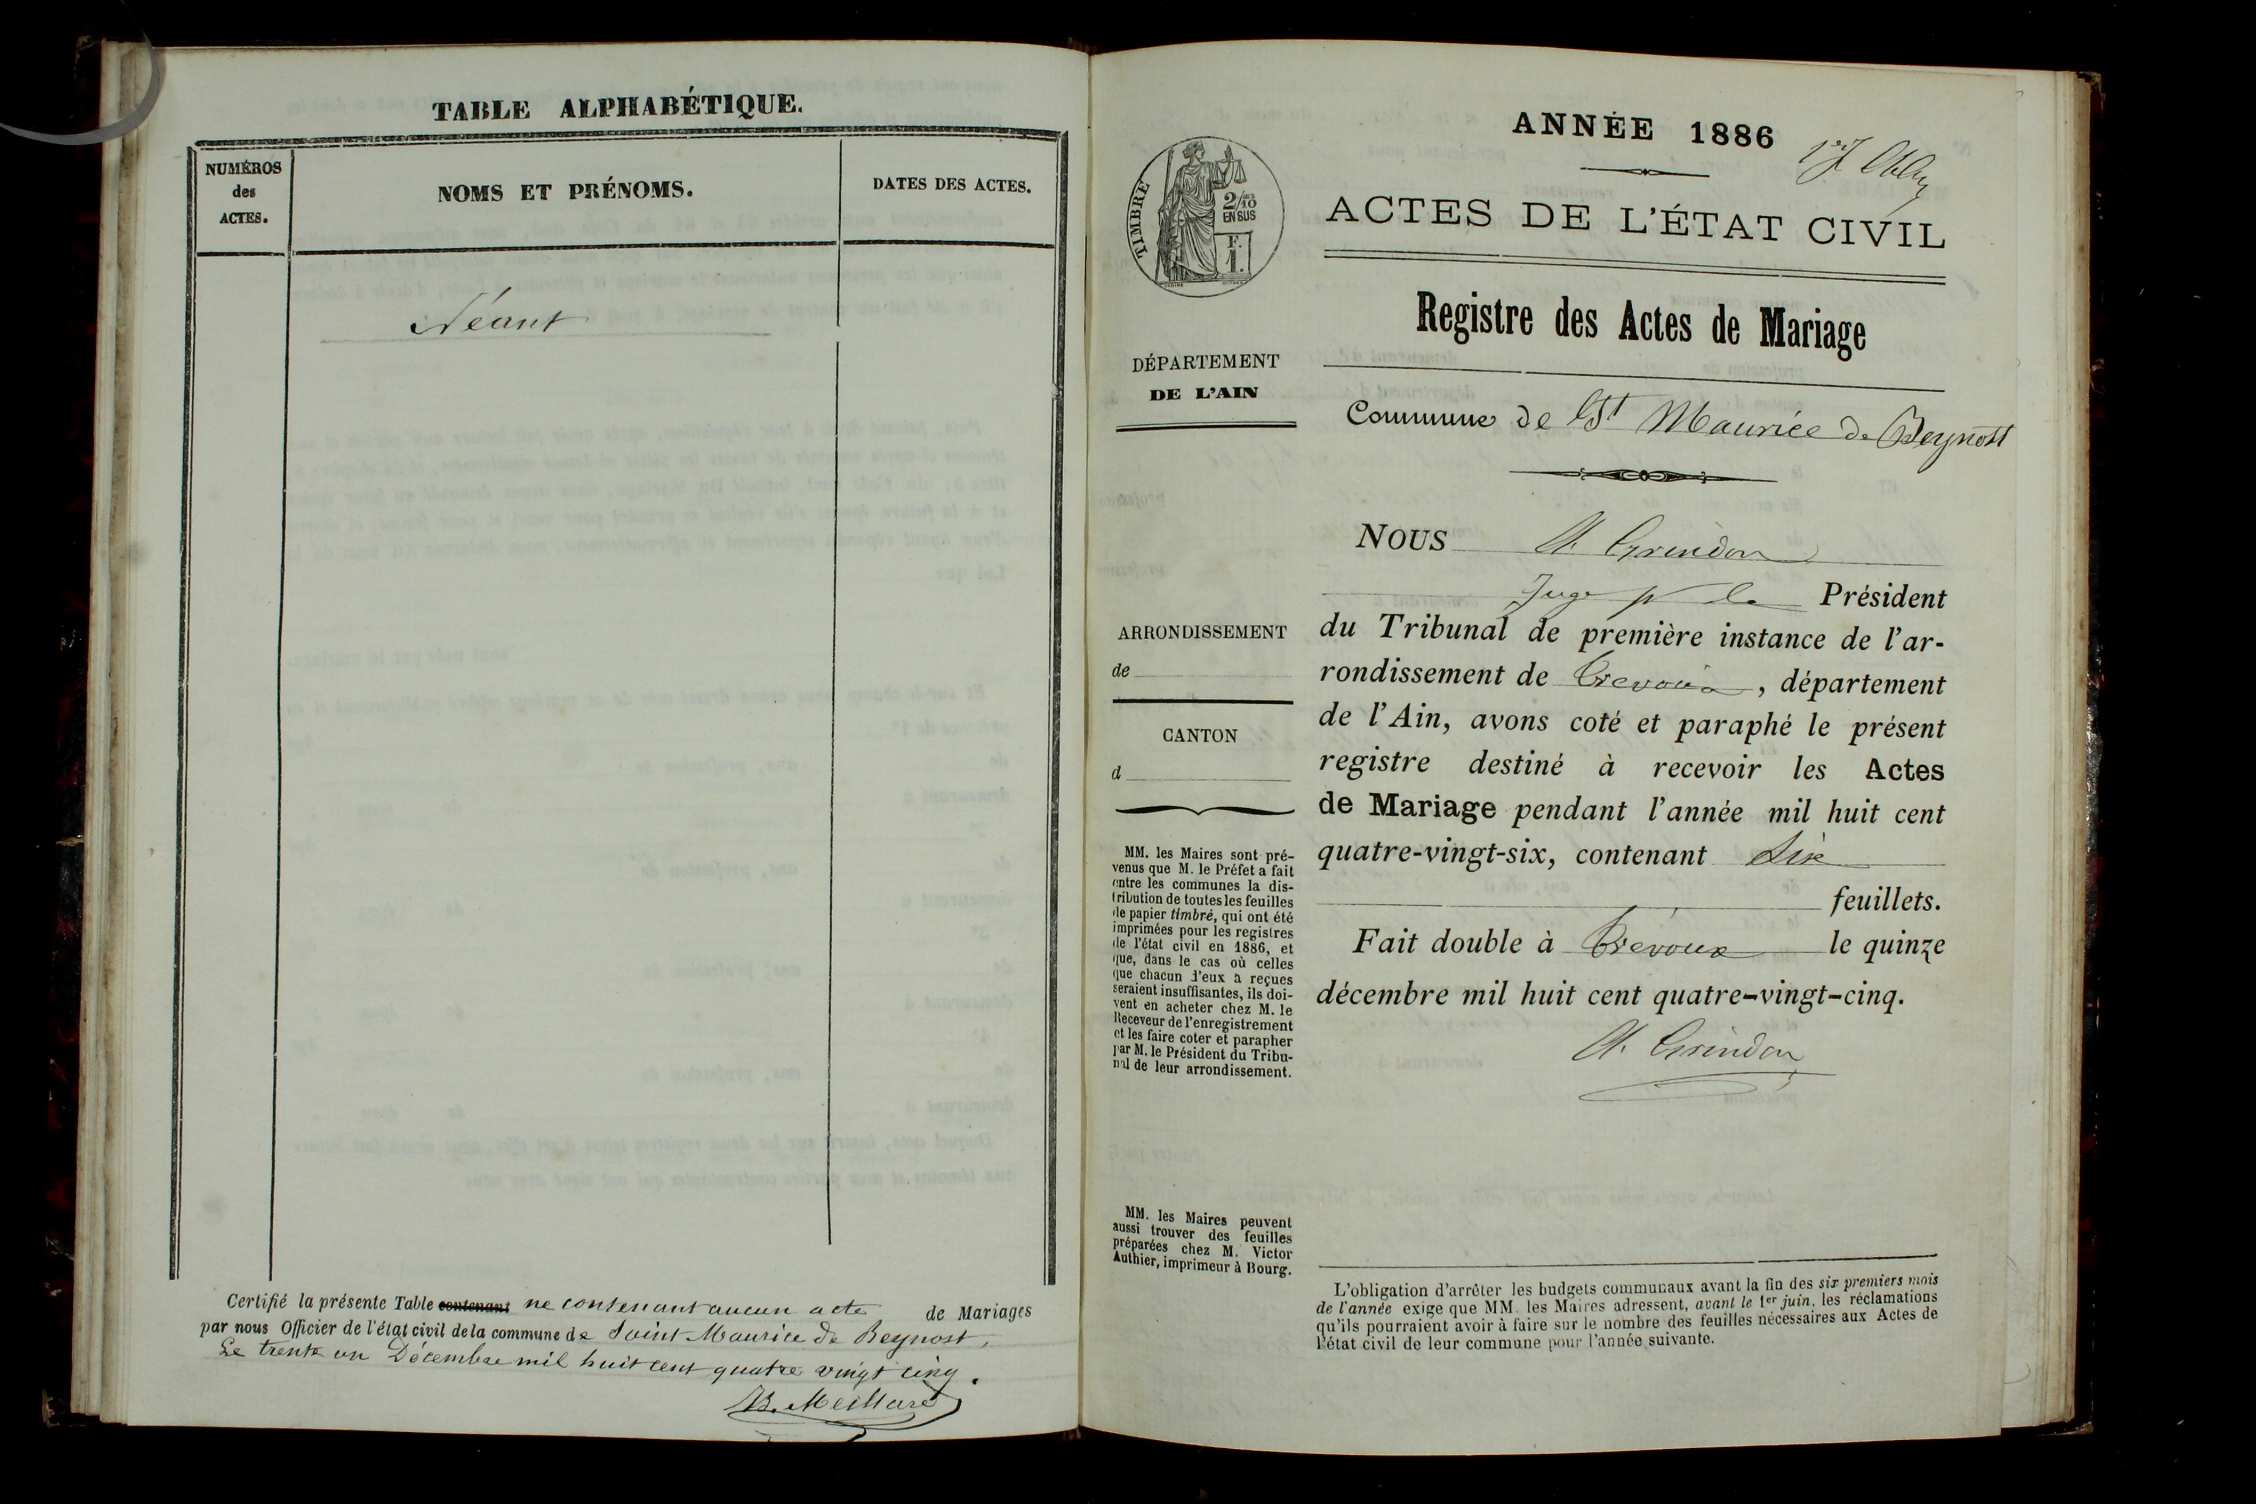 TABLE ALPHABÉTIQUE.
NUMÉROS
des
ACTES.
NOMS ET PRÉNOMS.
DATES DES ACTES.
Néant
Certifié la présente Table contenant ne contenant aucun acte de Mariages
par nous Officier de l'état civil de la commune de Saint Maurice de Beynost,
Le trente un Décembre mil huit cent quatre vingt cinq.
B. Meillard
ANNÉE 1886
TIMBRE
2/10
EN SUS
F.
1.
ACTES DE L'ÉTAT CIVIL
Registre des Actes de Mariage
DÉPARTEMENT
DE L'AIN
Commune de St Maurice de Beynost
NOUS Grindon
Juge pr le Président
du Tribunal de première instance de l'ar-
rondissement de Trevoux, département
de l'Ain, avons coté et paraphé le présent
registre destiné à recevoir les Actes
de Mariage pendant l'année mil huit cent
quatre-vingt-six, contenant Six
feuillets.
Fait double à Trevoux le quinze
décembre mil huit cent quatre-vingt-cinq.
Grindon
ARRONDISSEMENT
de
CANTON
d
MM. les Maires sont pré-
venus que M. le Préfet a fait
entre les communes la dis-
tribution de toutes les feuilles
de papier timbré, qui ont été
imprimées pour les registres
de l'état civil en 1886, et
que, dans le cas où celles
que chacun d'eux a reçues
seraient insuffisantes, ils doi-
vent en acheter chez M. le
Receveur de l'enregistrement
et les faire coter et parapher
par M. le Président du Tribu-
nal de leur arrondissement.
MM. les Maires peuvent
aussi trouver des feuilles
préparées chez M. Victor
Authier, imprimeur à Bourg.
L'obligation d'arrêter les budgets communaux avant la fin des six premiers mois
de l'année exige que MM. les Maires adressent, avant le 1er juin, les réclamations
qu'ils pourraient avoir à faire sur le nombre des feuilles nécessaires aux Actes de
l'état civil de leur commune pour l'année suivante.